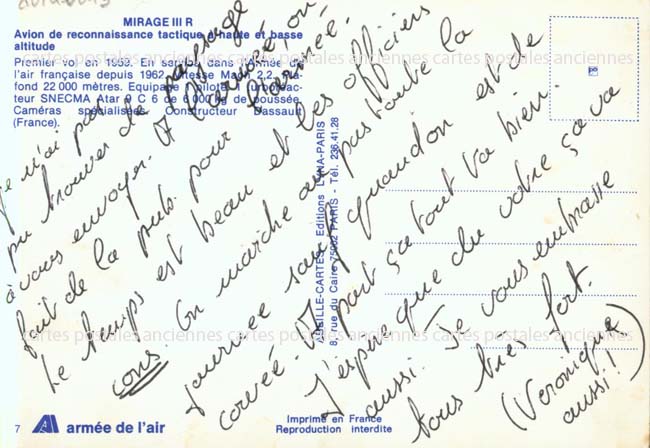 MIRAGE III R
Avion de reconnaissance tactique à haute et basse
altitude
Premier vol en 1953. En service dans l'armée de
l'air française depuis 1962. Vitesse Mach 2,2. Plafond
22 000 mètres. Equipage 1 pilote. Turboréacteur
SNECMA Atar 9 C 6 de 6 000 kg de poussée.
Caméras spécialisées. Constructeur Dassault
(France).
Je n'ai pas
pu trouver de paysage
à vous envoyer. A l'armée, on
fait de la pub. pour l'armée.
Le temps est beau et les officiers
cons. On marche au pas toute la
journée sauf quand on est de
corvée. A part ça tout va bien.
J'espère que du votre ça va
aussi. Je vous embrasse
tous très fort.
(Veronique
aussi!)
ABEILLE-CARTES Editions LYNA-PARIS
8, rue du Caire 75002 PARIS - Tél. 236.41.28
cartes postales anciennes cartes postales anciennes cartes postales anciennes
cartes postales anciennes cartes postales anciennes cartes postales anciennes
7
armée de l'air
Imprimé en France
Reproduction interdite